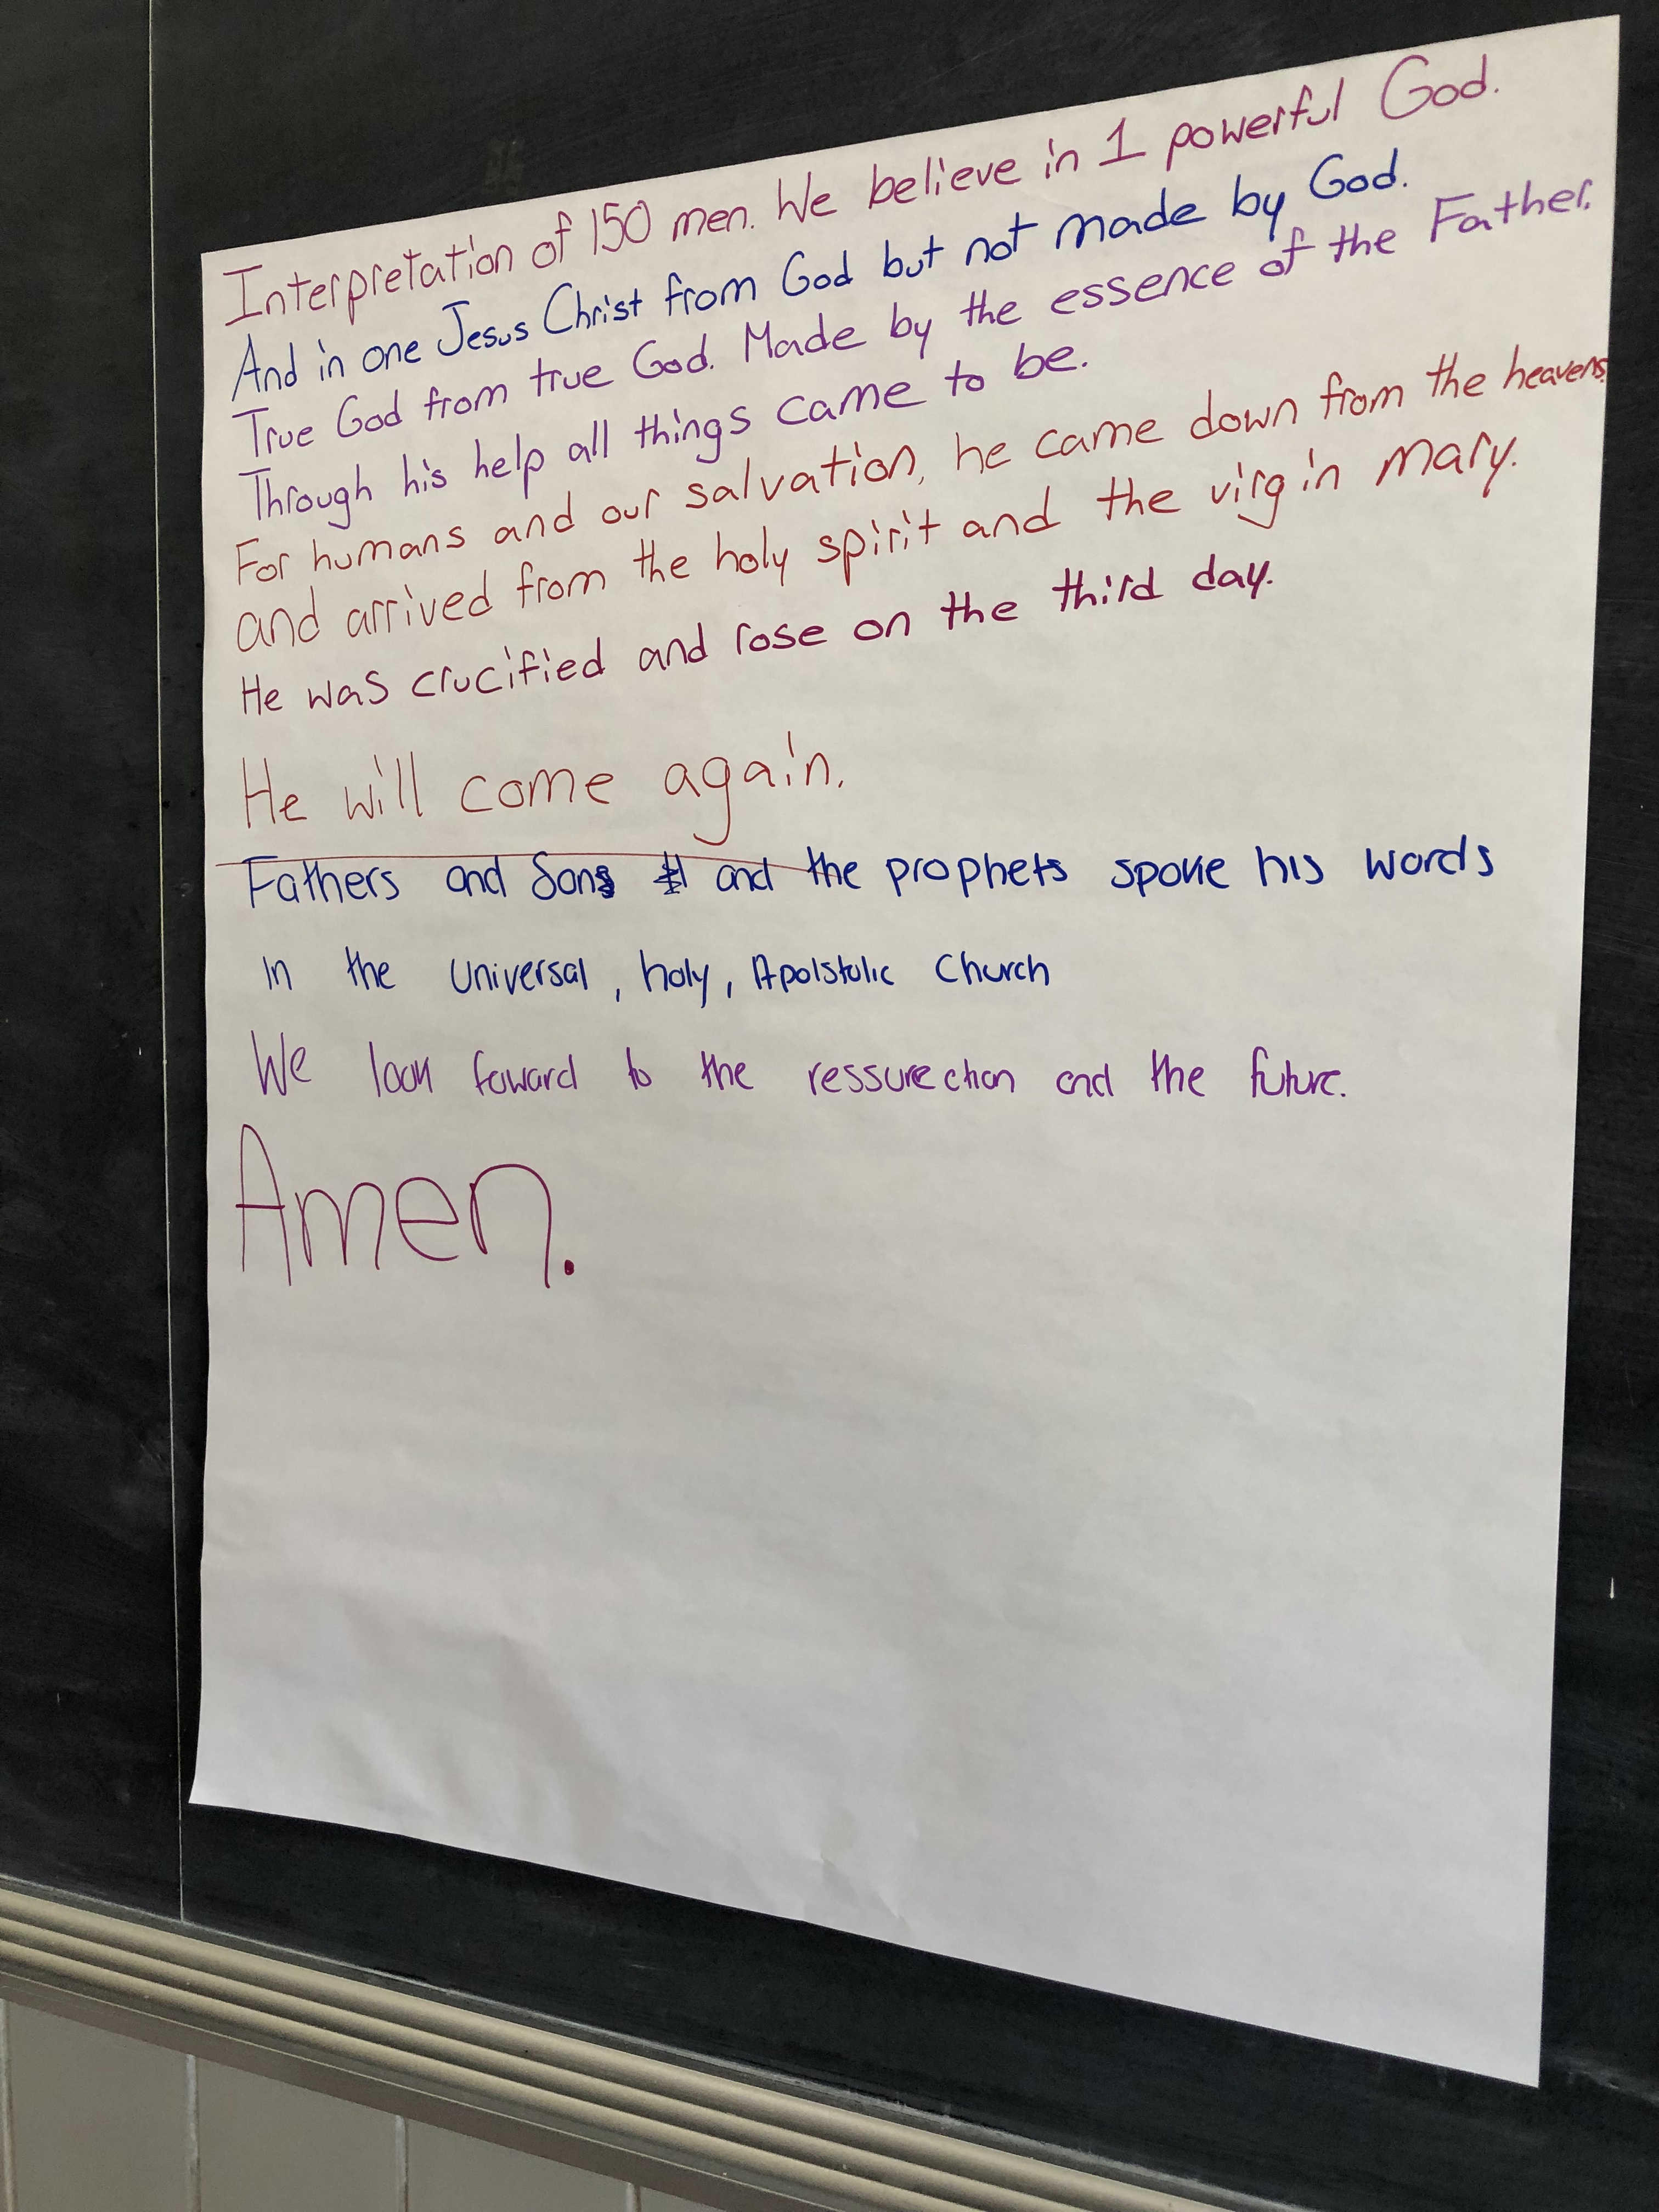 Interpretation of 150 men. We believe in 1 powerful God.
And in one Jesus Christ from God but not made by God.
True God from true God. Made by the essence of the Father.
Through his help all things came to be.
For humans and our salvation, he came down from the heavens.
and arrived from the holy spirit and the virgin mary.
He was crucified and rose on the third day.
He will come again.
Fathers and Sons and the prophets spoke his words
in the universal, holy, Apolstolic Church
We look foward to the ressurection and the future.
Amen.